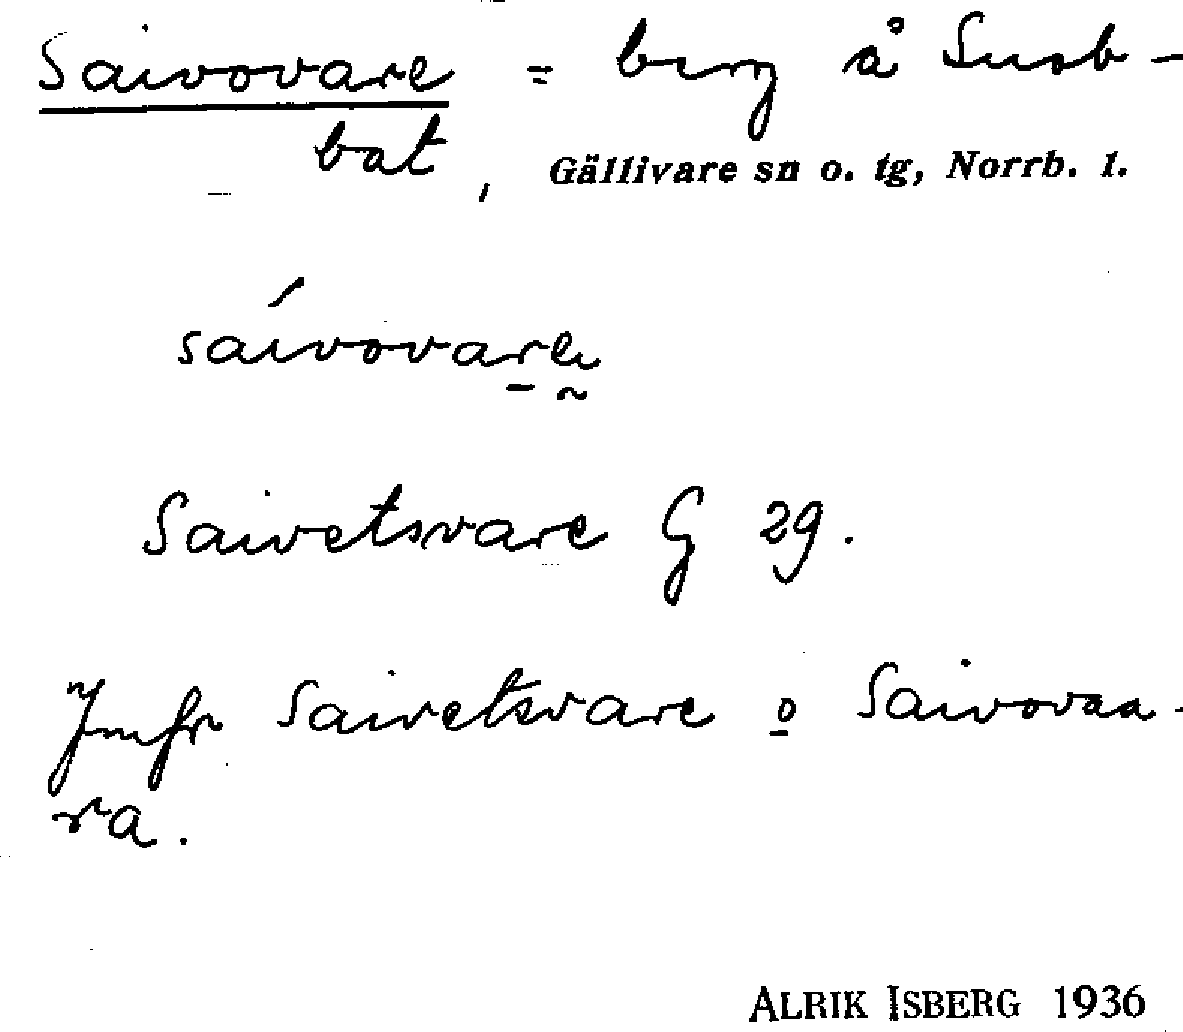 Saivovare = berg å Snob-
bat, Gällivare sn o. tg, Norrb. l.
saívovare
Saivetsvare G 29.
Jmfr Saivetsvare o Saivovaa-
ra.
ALRIK ISBERG 1936